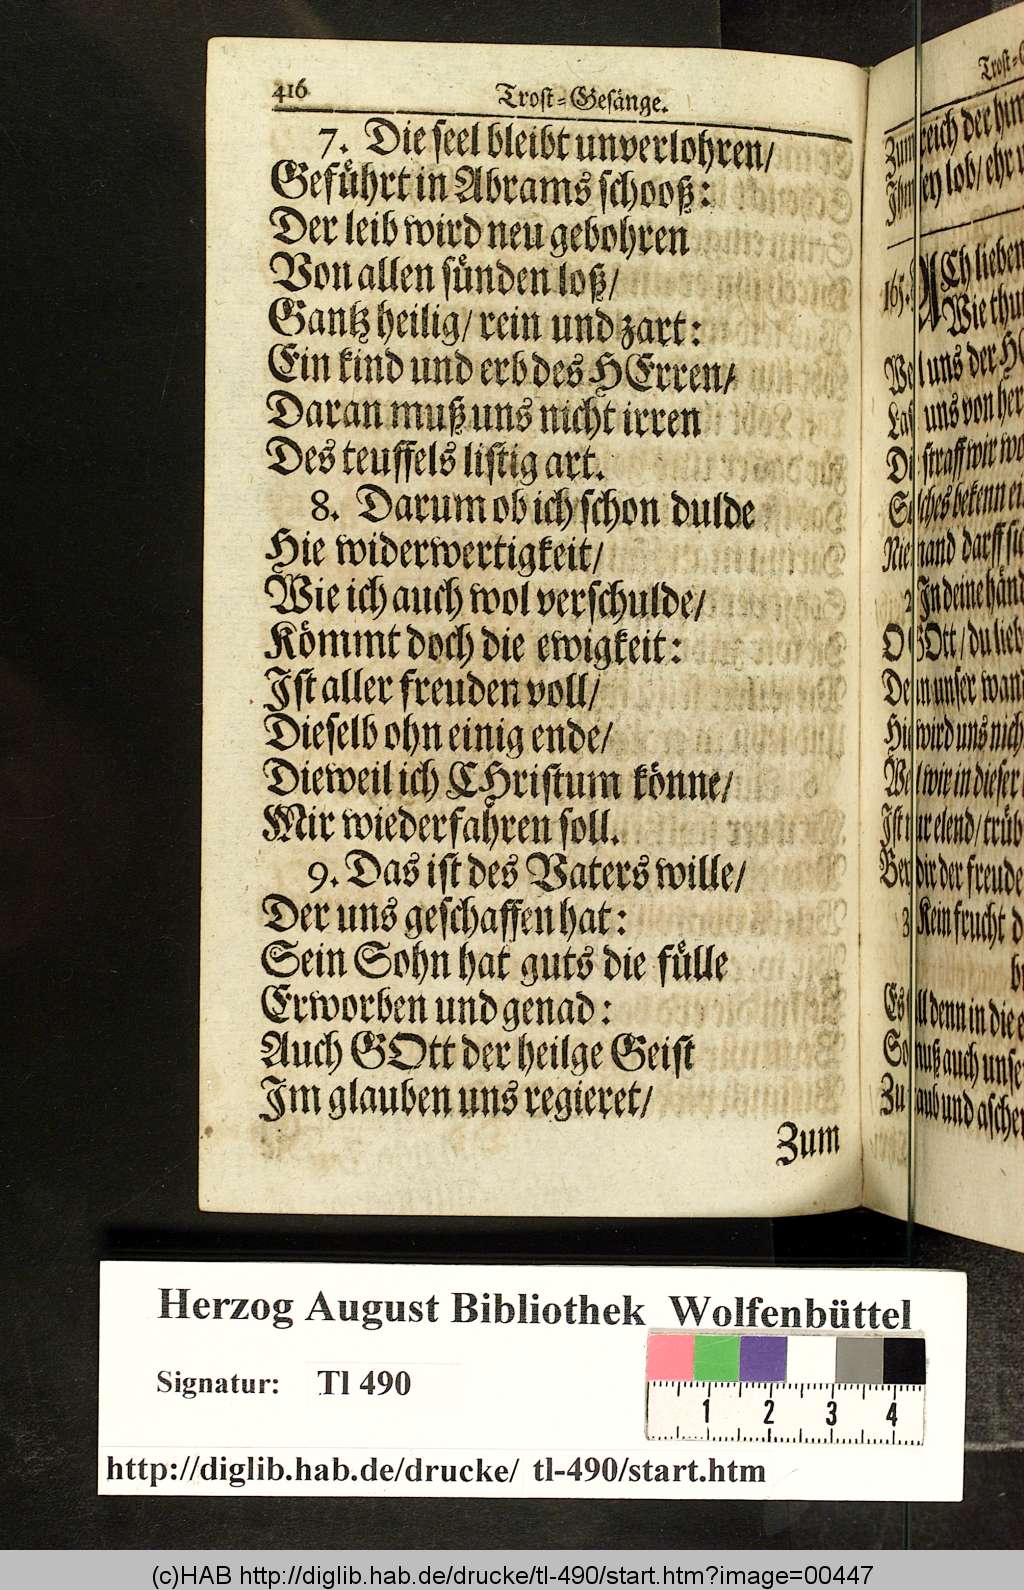 416
Trost-Gesänge.
7. Die seel bleibt unverlohren/
Geführt in Abrams schooß:
Der leib wird neu gebohren
Von allen sünden loß/
Gantz heilig/ rein und zart:
Ein kind und erb des HErren/
Daran muß uns nicht irren
Des teuffels listig art.
8. Darum ob ich schon dulde
Hie widerwertigkeit/
Wie ich auch wol verschulde/
Kömmt doch die ewigkeit:
Ist aller freuden voll/
Dieselb ohn einig ende/
Dieweil ich CHristum könne/
Mir wiederfahren soll.
9. Das ist des Vaters wille/
Der uns geschaffen hat:
Sein Sohn hat guts die fülle
Erworben und genad:
Auch GOtt der heilge Geist
Im glauben uns regieret/
Zum
Trost-
reich der
lob/ ehr
165.
ACh lieben
Wie
uns der
uns von
straff wir
bekenn
darff
In deine
O GOtt/ du
unser
wird uns
wir in dieser
elend/
dir der freude
Kein frucht
denn in die
auch
und aschen
Herzog August Bibliothek Wolfenbüttel
Signatur: Tl 490
1 2 3 4
http://diglib.hab.de/drucke/ tl-490/start.htm
(c)HAB http://diglib.hab.de/drucke/tl-490/start.htm?image=00447